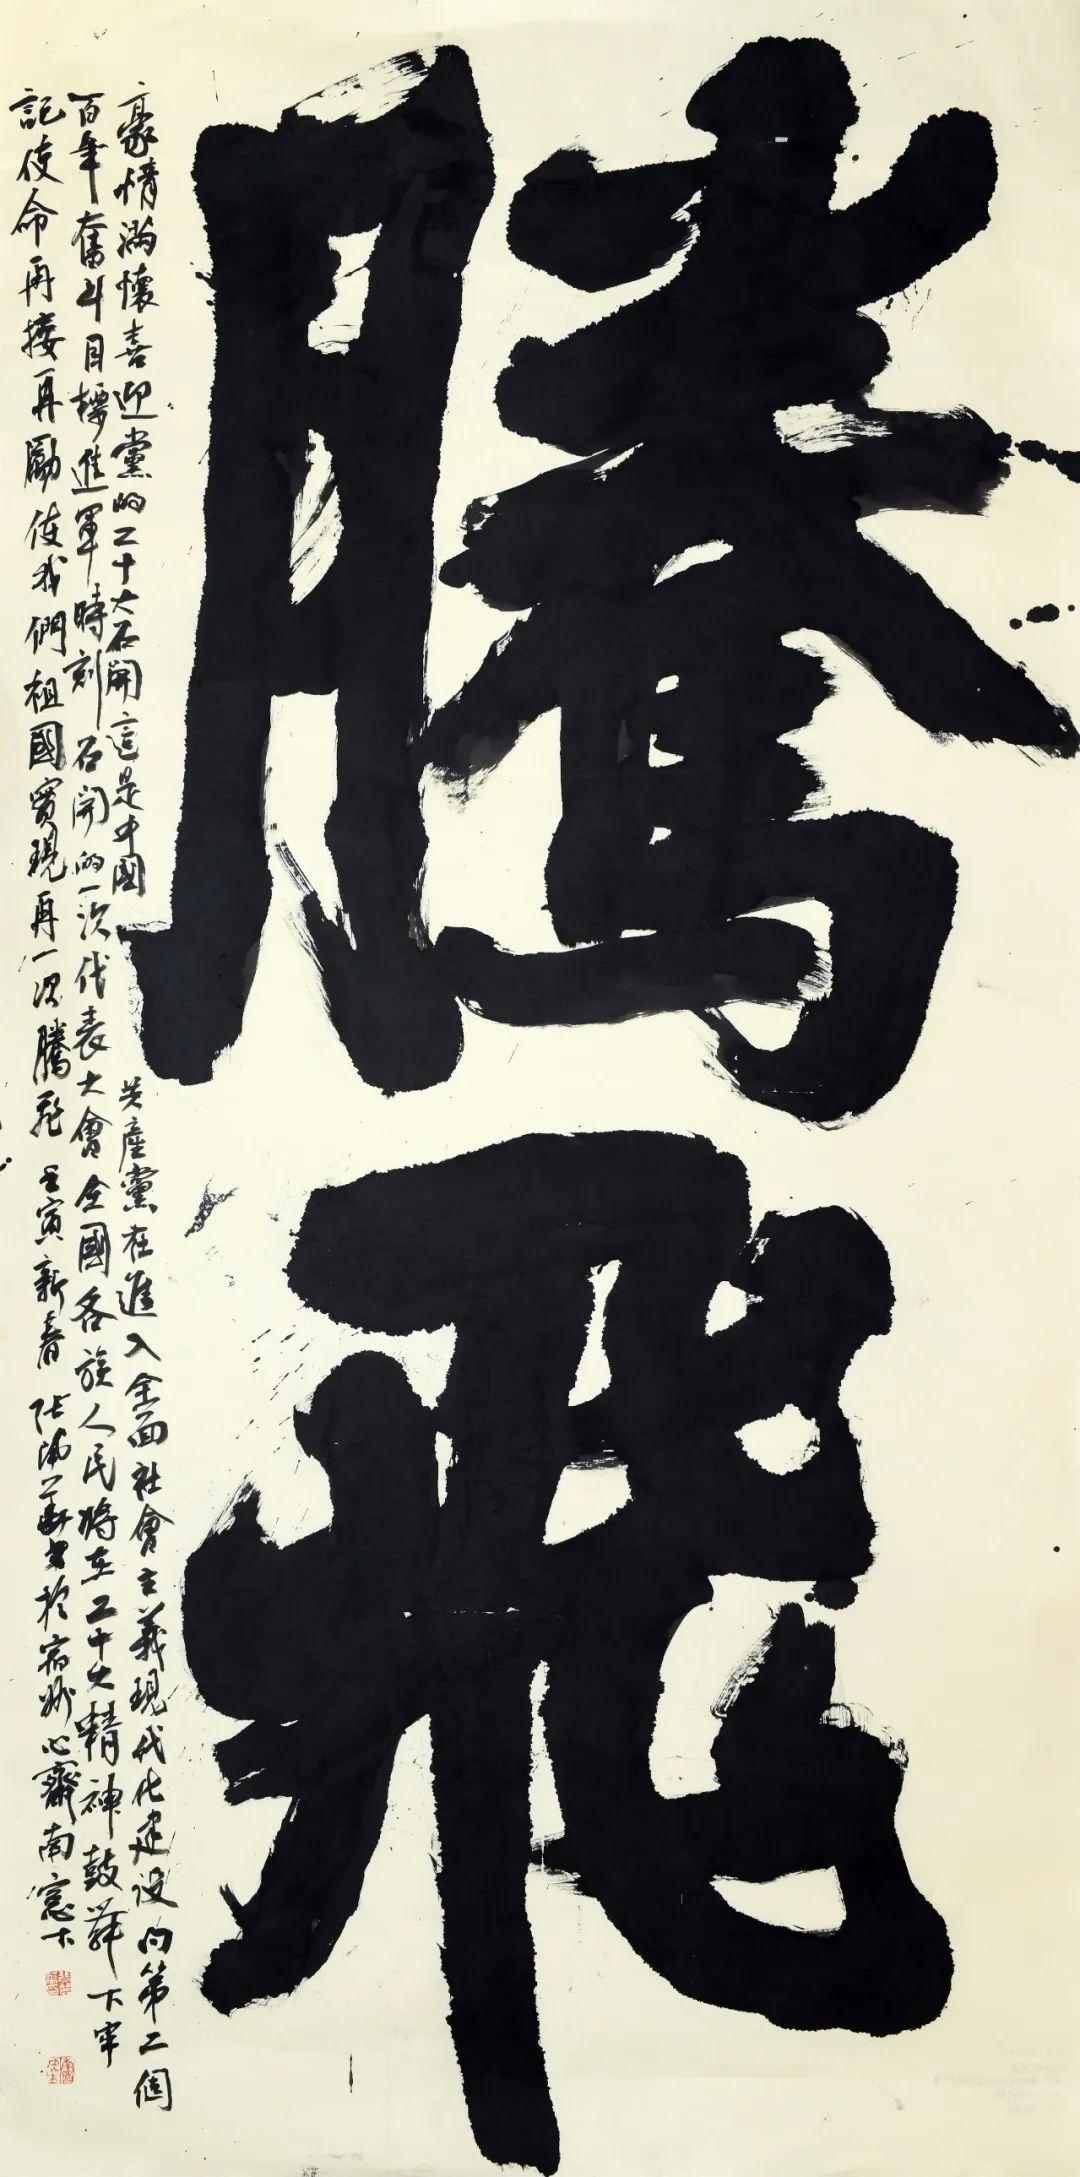 騰飛
豪情滿懷喜迎黨的二十大召開這是中國共產黨在進入全面社會主義現代化建設向第二個
百年奮斗目標進軍時刻召開的一次代表大會全國各族人民將在二十大精神鼓舞下牢
記使命再接再勵使我們祖國實現再一次騰飛壬寅新春張書於宿州心齋南窗下